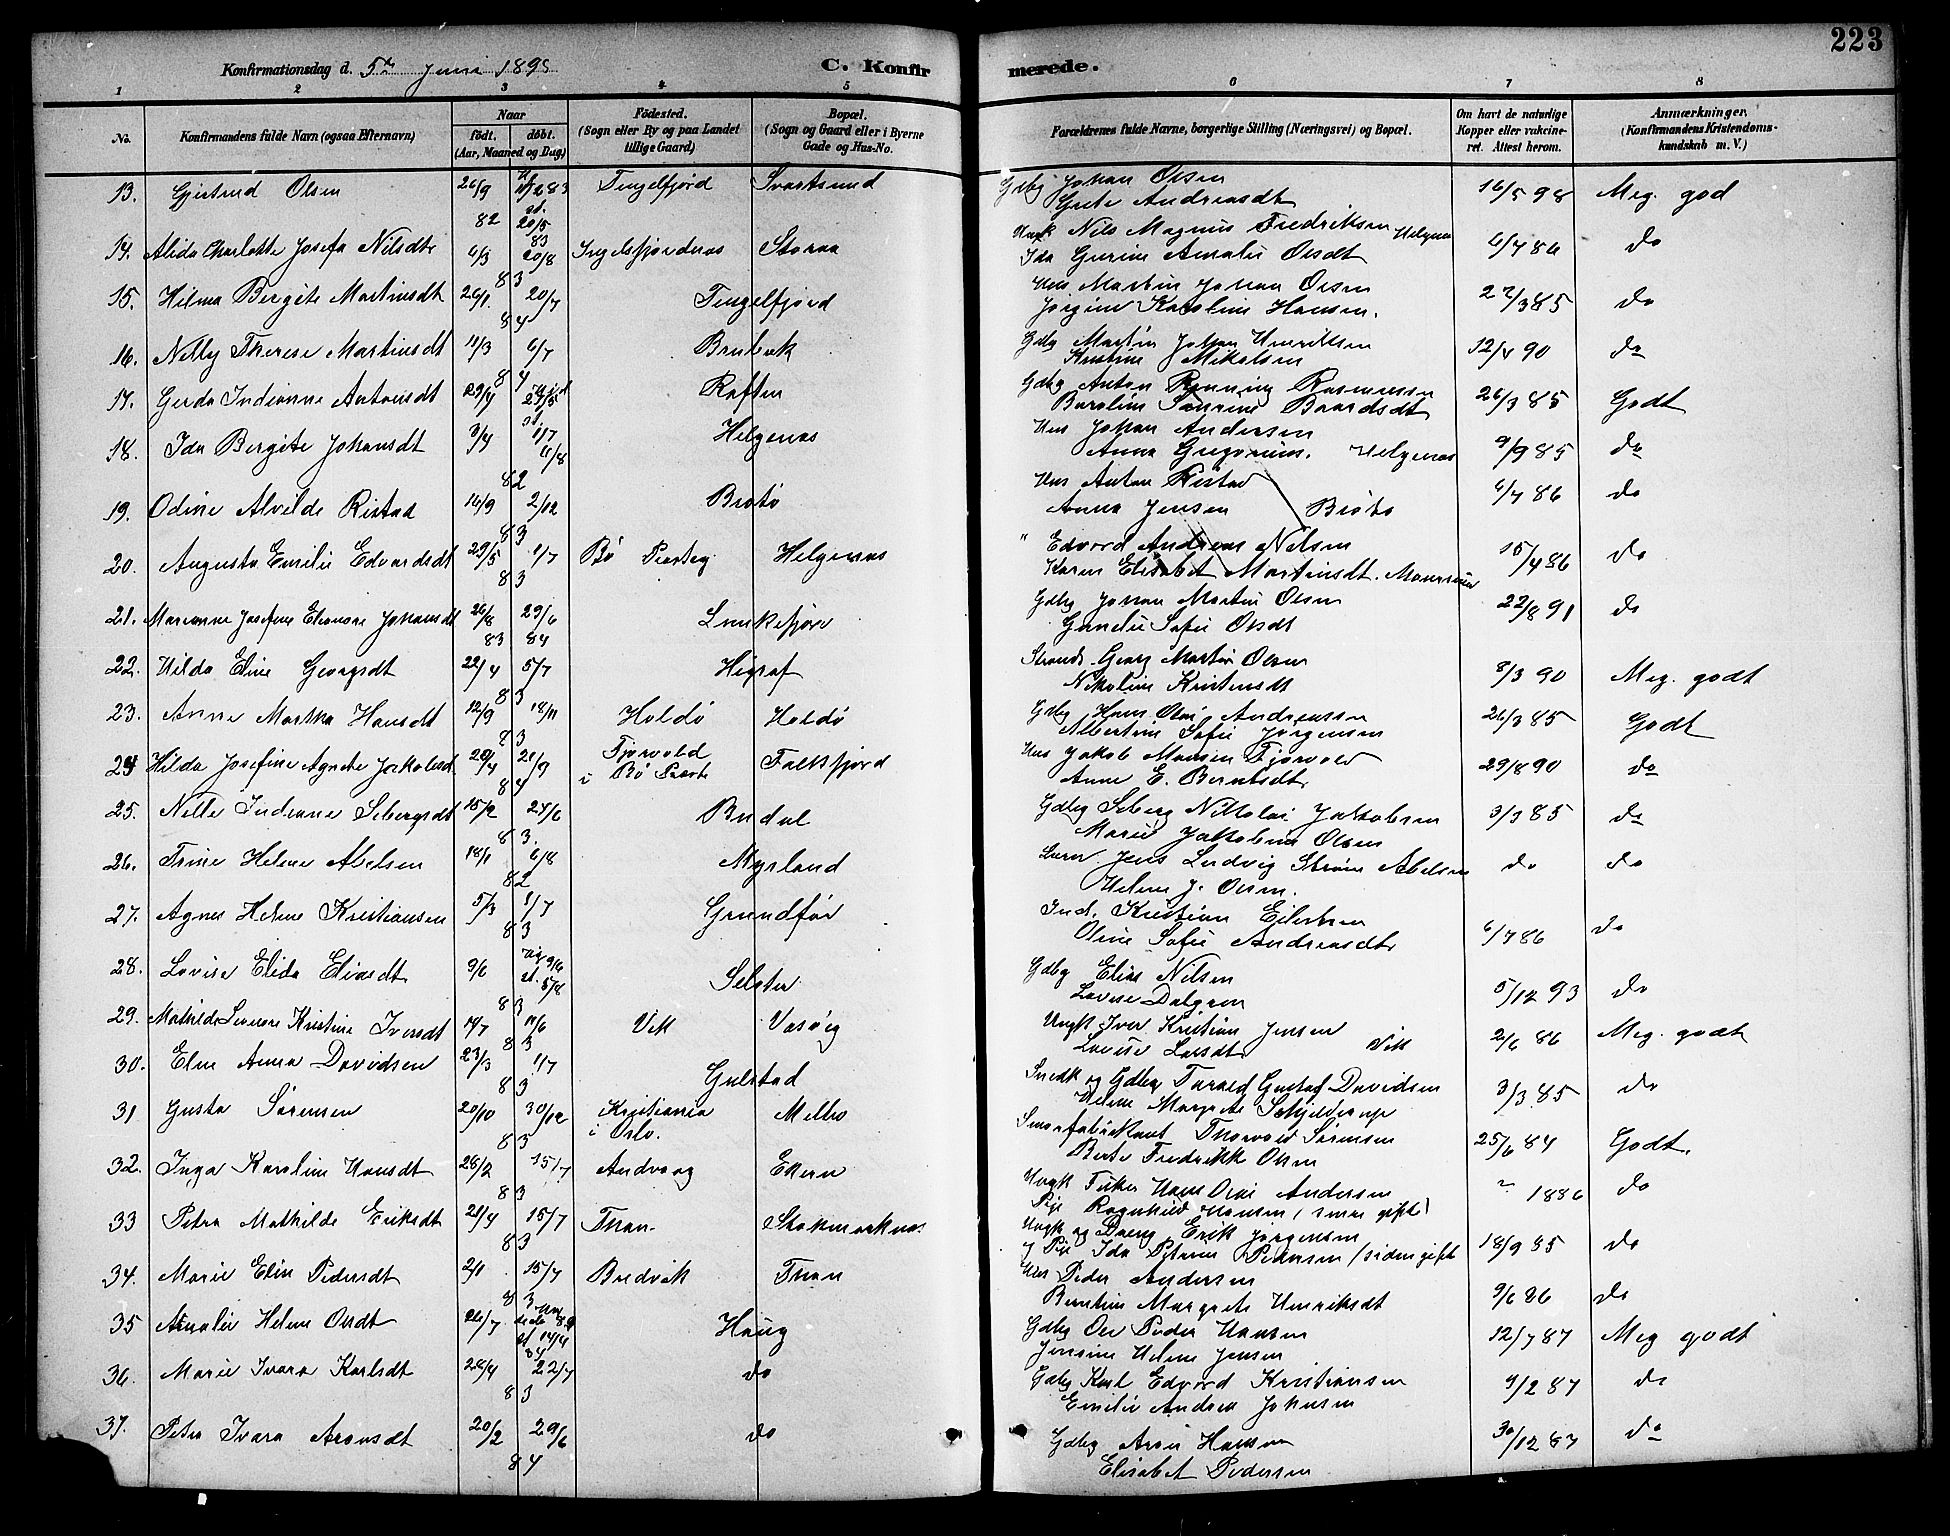 223
Konfirmationsdag d. 5te Juni 1898
C. Konfir
merede.
1 2 3 4 5 6 7 8
No.
Konfirmandens fulde Navn (ogsaa Efternavn)
Naar
födt. döbt.
(Aar, Maaned og Dag)
Födested.
(Sogn eller By og paa Landet
tillige Gaard)
Bopæl.
(Sogn og Gaard eller i Byerne
Gade og Hus-No.
Forældrenes fulde Navne, borgerlige Stilling (Næringsvei) og Bopæl.
Om havt de naturlige
Kopper eller vakcine-
ret. Attest herom.
Anmærkninger.
(Konfirmandens Kristendoms-
kundskab m. V.)
13. Gjertrud Olsen 26/9 82 20/5 83 Tengelfjord Svartsund Gdbg Johan Olsen 16/5 98 Meg. god
Grete Andreasdt
14. Alida Charlotte Josefa Nilsdtr 6/3 20/8 83 Ingelsfjordnes Storaa Nils Magnus Fredriksen Helgenes 6/7 86 do
Ida Gurine Amalie Olsdt
15. Hilma Bergite Martinsdt 26/1 20/7 84 Tengelfjord Hus Martin Johan Olsen 27/3 85 do
Jørgine Karoline Hansen.
16. Nelly Therese Martinsdt 11/3 6/7 84 Brubæk Gdbg Martin Johan Henriksen 12/4 90 do
Kristine Mikelsen
17. Gerda Indianne Antonsdt 29/4 Raften Gdbg Anton Rønning Rasmussen 26/3 85 Godt
Baroline Baardsdt
18. Ida Bergite Johansdt 3/4 1/7 6/8 82 Helgenes Hus Johan Andersen 9/9 85 do
Anna Gregoriuss. Helgenes
19. Odine Alvilde Ristad 16/9 2/12 83 Brotø Hus Anton Ristad 6/7 86 do
Anna Jensen Brotø
20. Augusta Emilie Edvardsdt 29/5 1/7 83 Bø Presteg Helgenes " Edvard Andreas Nilsen 15/4 86 do
Karen Elisabet Martinsdt.
21. Marianne Josefine Eleonore Johansdt 26/8 83 29/6 84 Lunkefjore Gdbg Johan Martin Olsen 22/8 91 do
Gunelie Sofie Olsdt
22. Hilda Eline Georgsdt 22/4 5/7 83 Higraf Strands. Georg Martin Olsen 8/3 90 Meg. godt
Nikoline Kristensdt
23. Anne Martha Hansdt 12/9 18/11 83 Holdø Holdø Gdbg Hans Olai Andreassen 26/3 85 Godt
Albertine Sofie Jørgensen
24 Hilda Josefine Agnete Jakobsdt 20/4 21/9 84 Fjørvold Falkfjord Hus Jakob Monsen Fjørvold 29/8 90 do
i Bø Præste Anne E. Berntsdtr
25. Nelle Indianne Sebergsdt 15/2 24/6 83. Budal Gdbg Seberg Nikkolai Jakobsen 3/3 85 do
Marie Jakobine Olsen
26. Trine Helene Abelsen 18/1 6/8 82 Myrland Jens Ludvig Strøm Abelsen do do
Helene J. Olsen.
27. Agnes Helene Kristiansen 5/3 1/7 83 Grundfør Ind. Kristian Eilertsen 6/7 86 do
Oline Sofie Andreasdtr
28. Lovise Elida Eliasdt 9/6 5/8 83 Selster Gdbg Elias Nilsen 5/12 93 do
Lovise Dalgren
29. Mathilde Leonore Kristine Iversdt 14/7 83 Vik Vasvig Ungk Iver Kristian Jensen Vik 2/6 86 Meg. godt
Lovise Larsdtr
30. Eline Anna Davidsen 23/3 1/7 83 Gulstad Snedk og Gdbg Tarald Gustaf Davidsen 3/3 85 do
Helene Margrete Schjelderup
31 Gusta Sørensen 20/10 30/12 83 Kristiania Melbo Smørfabrikant Thorvald Sørensen 25/6 84 Godt.
i Oslo. Berte Fredrikke Olsen
32. Inga Karoline Hansdt 28/2 15/7 83 Andvaag Ekern Ungk Fisker Hans Olai Andersen 1886 do
Pige Ragnhild Hansen (senere gift)
33 Petra Mathilde Eriksdt 21/4 15/7 83 Thon. Stokmarknes Ungk og Erik Jørgensen 18/9 85 do
Pige Ida Petrine Pedersen (siden gift
34. Marie Elin Pedersdt 2/1 15/7 83 Bredvik Thon Hus Peder Andersen 9/6 86 do
Berntine Margrete Henriksdt
35 Amalie Helene Olsdt 26/7 14/4 84 Haug Gdbg Ole Peder Hansen 12/7 87 Meg godt
Jensine Helene Jensen
36. Marie Ivara Karlsdt 22/7 83 do Gdbg Karl Edvard Kristiansen 9/2 87 do
Emilie Andrea Johnsen
37. Petra Ivara Aronsdt 20/2 29/6 84 do Gdbg Aron Hansen 30/12 87 do
Elisabet Pedersen